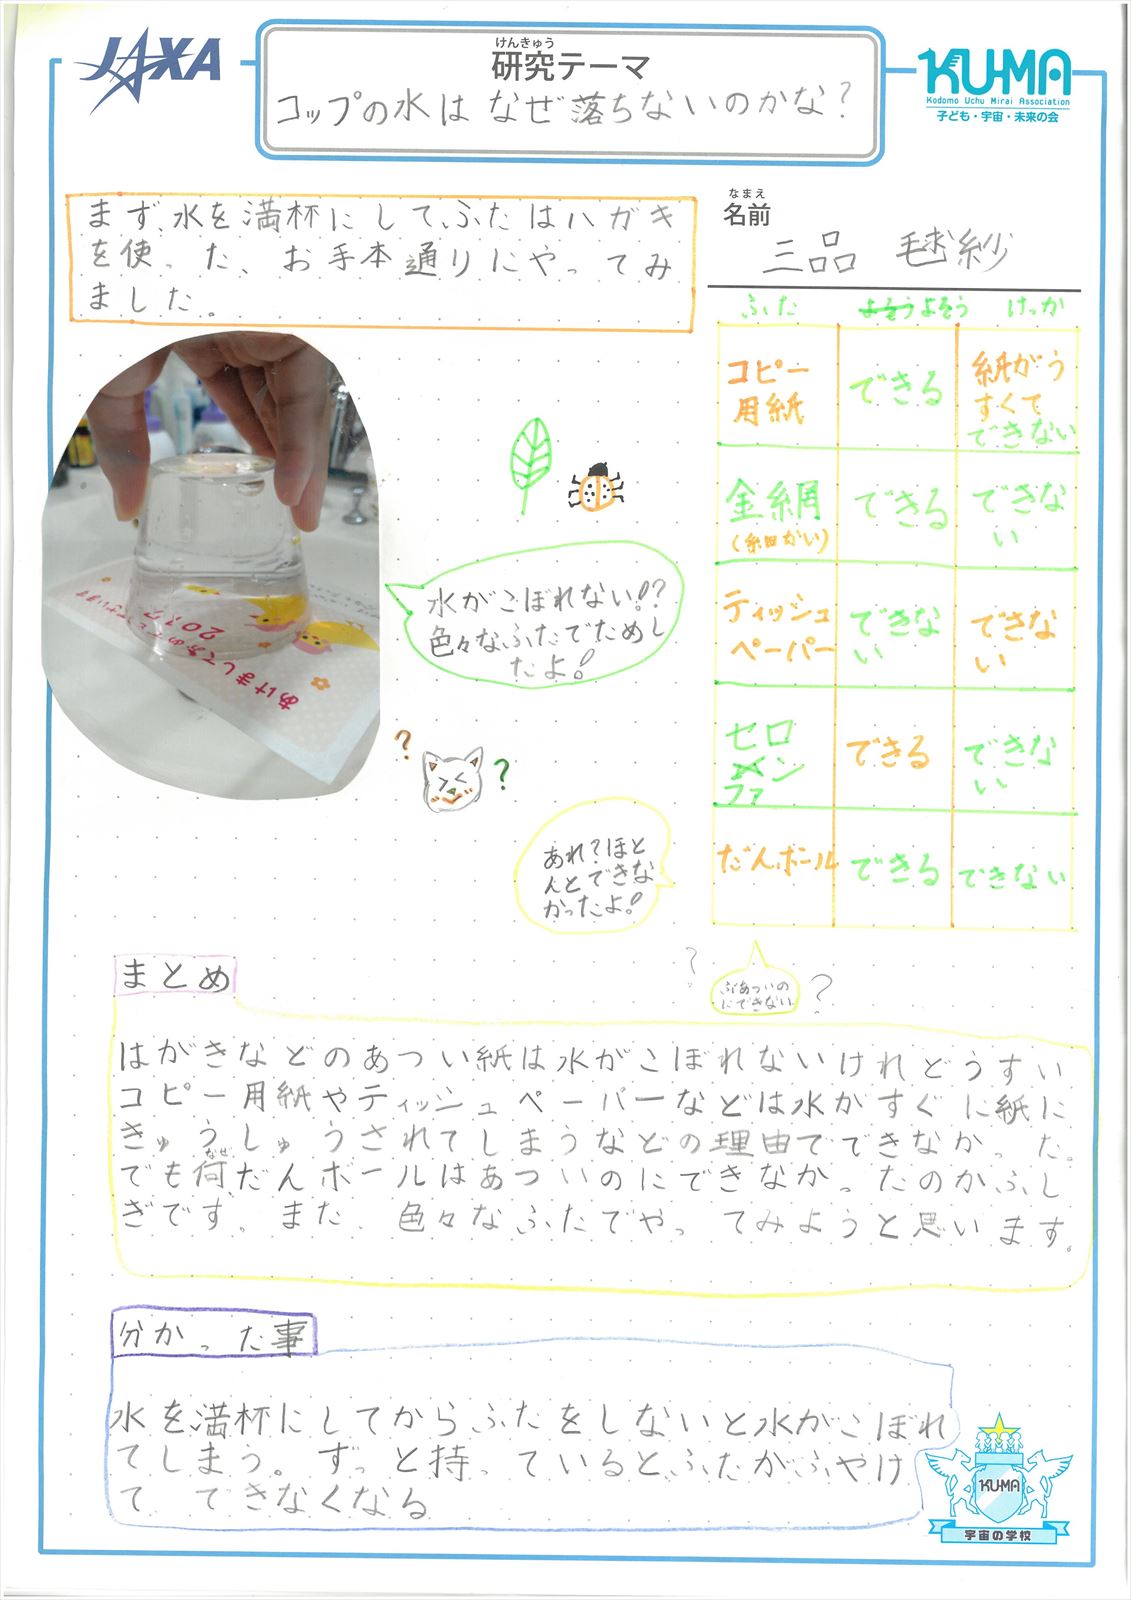 JAXA
けんきゅう
研究テーマ
コップの水は なぜ落ちないのかな?
KU-MA
Kodomo Uchu Mirai Association
子ども・宇宙・未来の会
まず、水を満杯にして、ふたはハガキ
を使った、お手本通りにやってみ
ました。
なまえ
名前
三品 毬紗
ふた よそう よそう けっか
コピー
用紙
できる
紙がう
すくて
できない
金網
(細かい)
できる
できな
い
ティッシュ
ペーパー
できな
い
できな
い
セロ
ハン
ファ
できる
できな
い
だんボール
できる
できない
あけましておめでとうございます
水がこぼれない!?
色々なふたでためし
たよ!
?
?
あれ?ほと
んどできな
かったよ!
?
ぶあついの
にできない
?
まとめ
はがきなどのあつい紙は水がこぼれないけれどうすい
コピー用紙やティッシュペーパーなどは水がすぐに紙に
きゅうしゅうされてしまうなどの理由でできなかった。
なぜ
でも何、だんボールはあついのにできなかったのかふし
ぎです。また、色々なふたでやってみようと思います。
分かった事
水を満杯にしてからふたをしないと水がこぼれ
てしまう。ずっと持っているとふたがふやけ
て、できなくなる
KU-MA
宇宙の学校